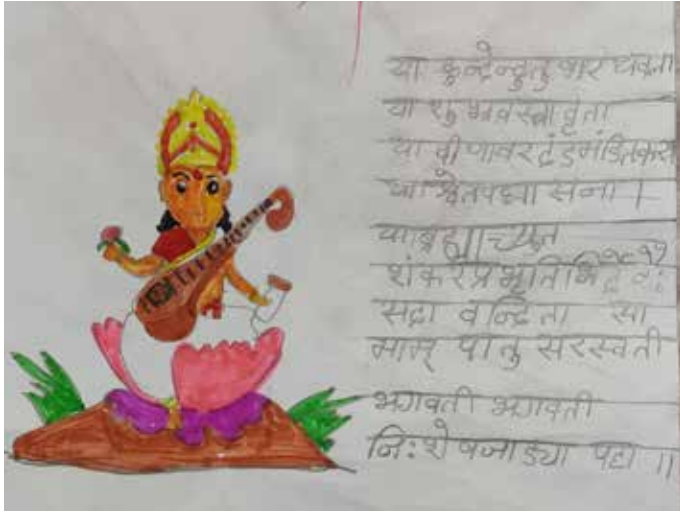 या कुन्देन्दुतुषार धवला
या शुभ्रवस्त्रावृता
या वीणावरदंडमंडितकरा
या श्वेतपद्मासना ।
या ब्रह्माच्युत
शंकरप्रभृतिभिर्देवैः
सदा वन्दिता सा
माम् पातु सरस्वती
भगवती भगवती
निःशेषजाड्या पहा ॥